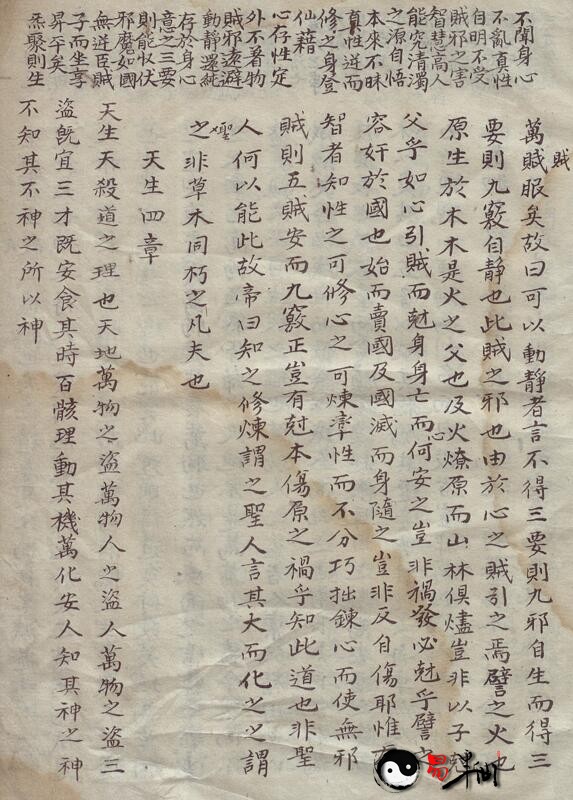 不聞身心
不亂真性
自明不受
賊邪之害
智慧高人
能究清濁
之源自悟
本來不昧
真性逆而
修之身登
仙藉
心存性定
外不著物
賊邪遠避
動靜還純
存於身心
意之三要
則能收伏
邪魔如國
無逆臣賊
子而坐享
昇平矣
炁聚則生
賊
萬賊眼矣故曰可以動靜者言不得三要則九邪自生而得三
要則九竅自静也此賊之邪也由於心之賊引之焉譬之火也
原生於木木是火之父也及火燎原而山林俱燼豈非以子尅
父乎如心引賊而尅身身亡而心何安之豈非禍發必尅乎譬之
容奸於國也始而賣國及國滅而身隨之豈非反自傷耶惟
智者知性之可修心之可煉率性而不分巧拙鍊心而使無邪
賊則五賊安而九竅正豈有尅本傷原之禍乎知此道也非聖
人何以能此故帝曰知之修煉謂之聖人言其大而化之之謂
聖
之非草木同朽之凡夫也
天生四章
天生天殺道之理也天地萬物之盜萬物人之盜人萬物之盜三
盜既宜三才既安食其時百骸理動其機萬化安人知其神之神
不知其不神之所以神
易